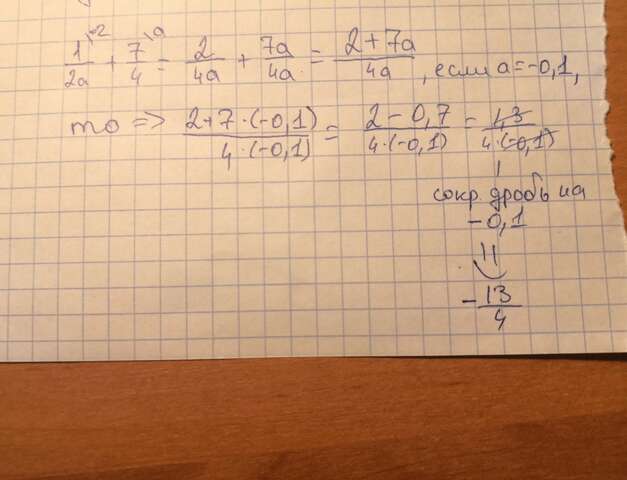 1\·2/2a + 7\a/4 = 2/4a + 7a/4a = 2+7a/4a, если a=-0,1,
то => 2+7·(-0,1)/4·(-0,1) = 2-0,7/4·(-0,1) = 1,3/4·(-0,1)
сокр. дробь на
-0,1
=
-13/4